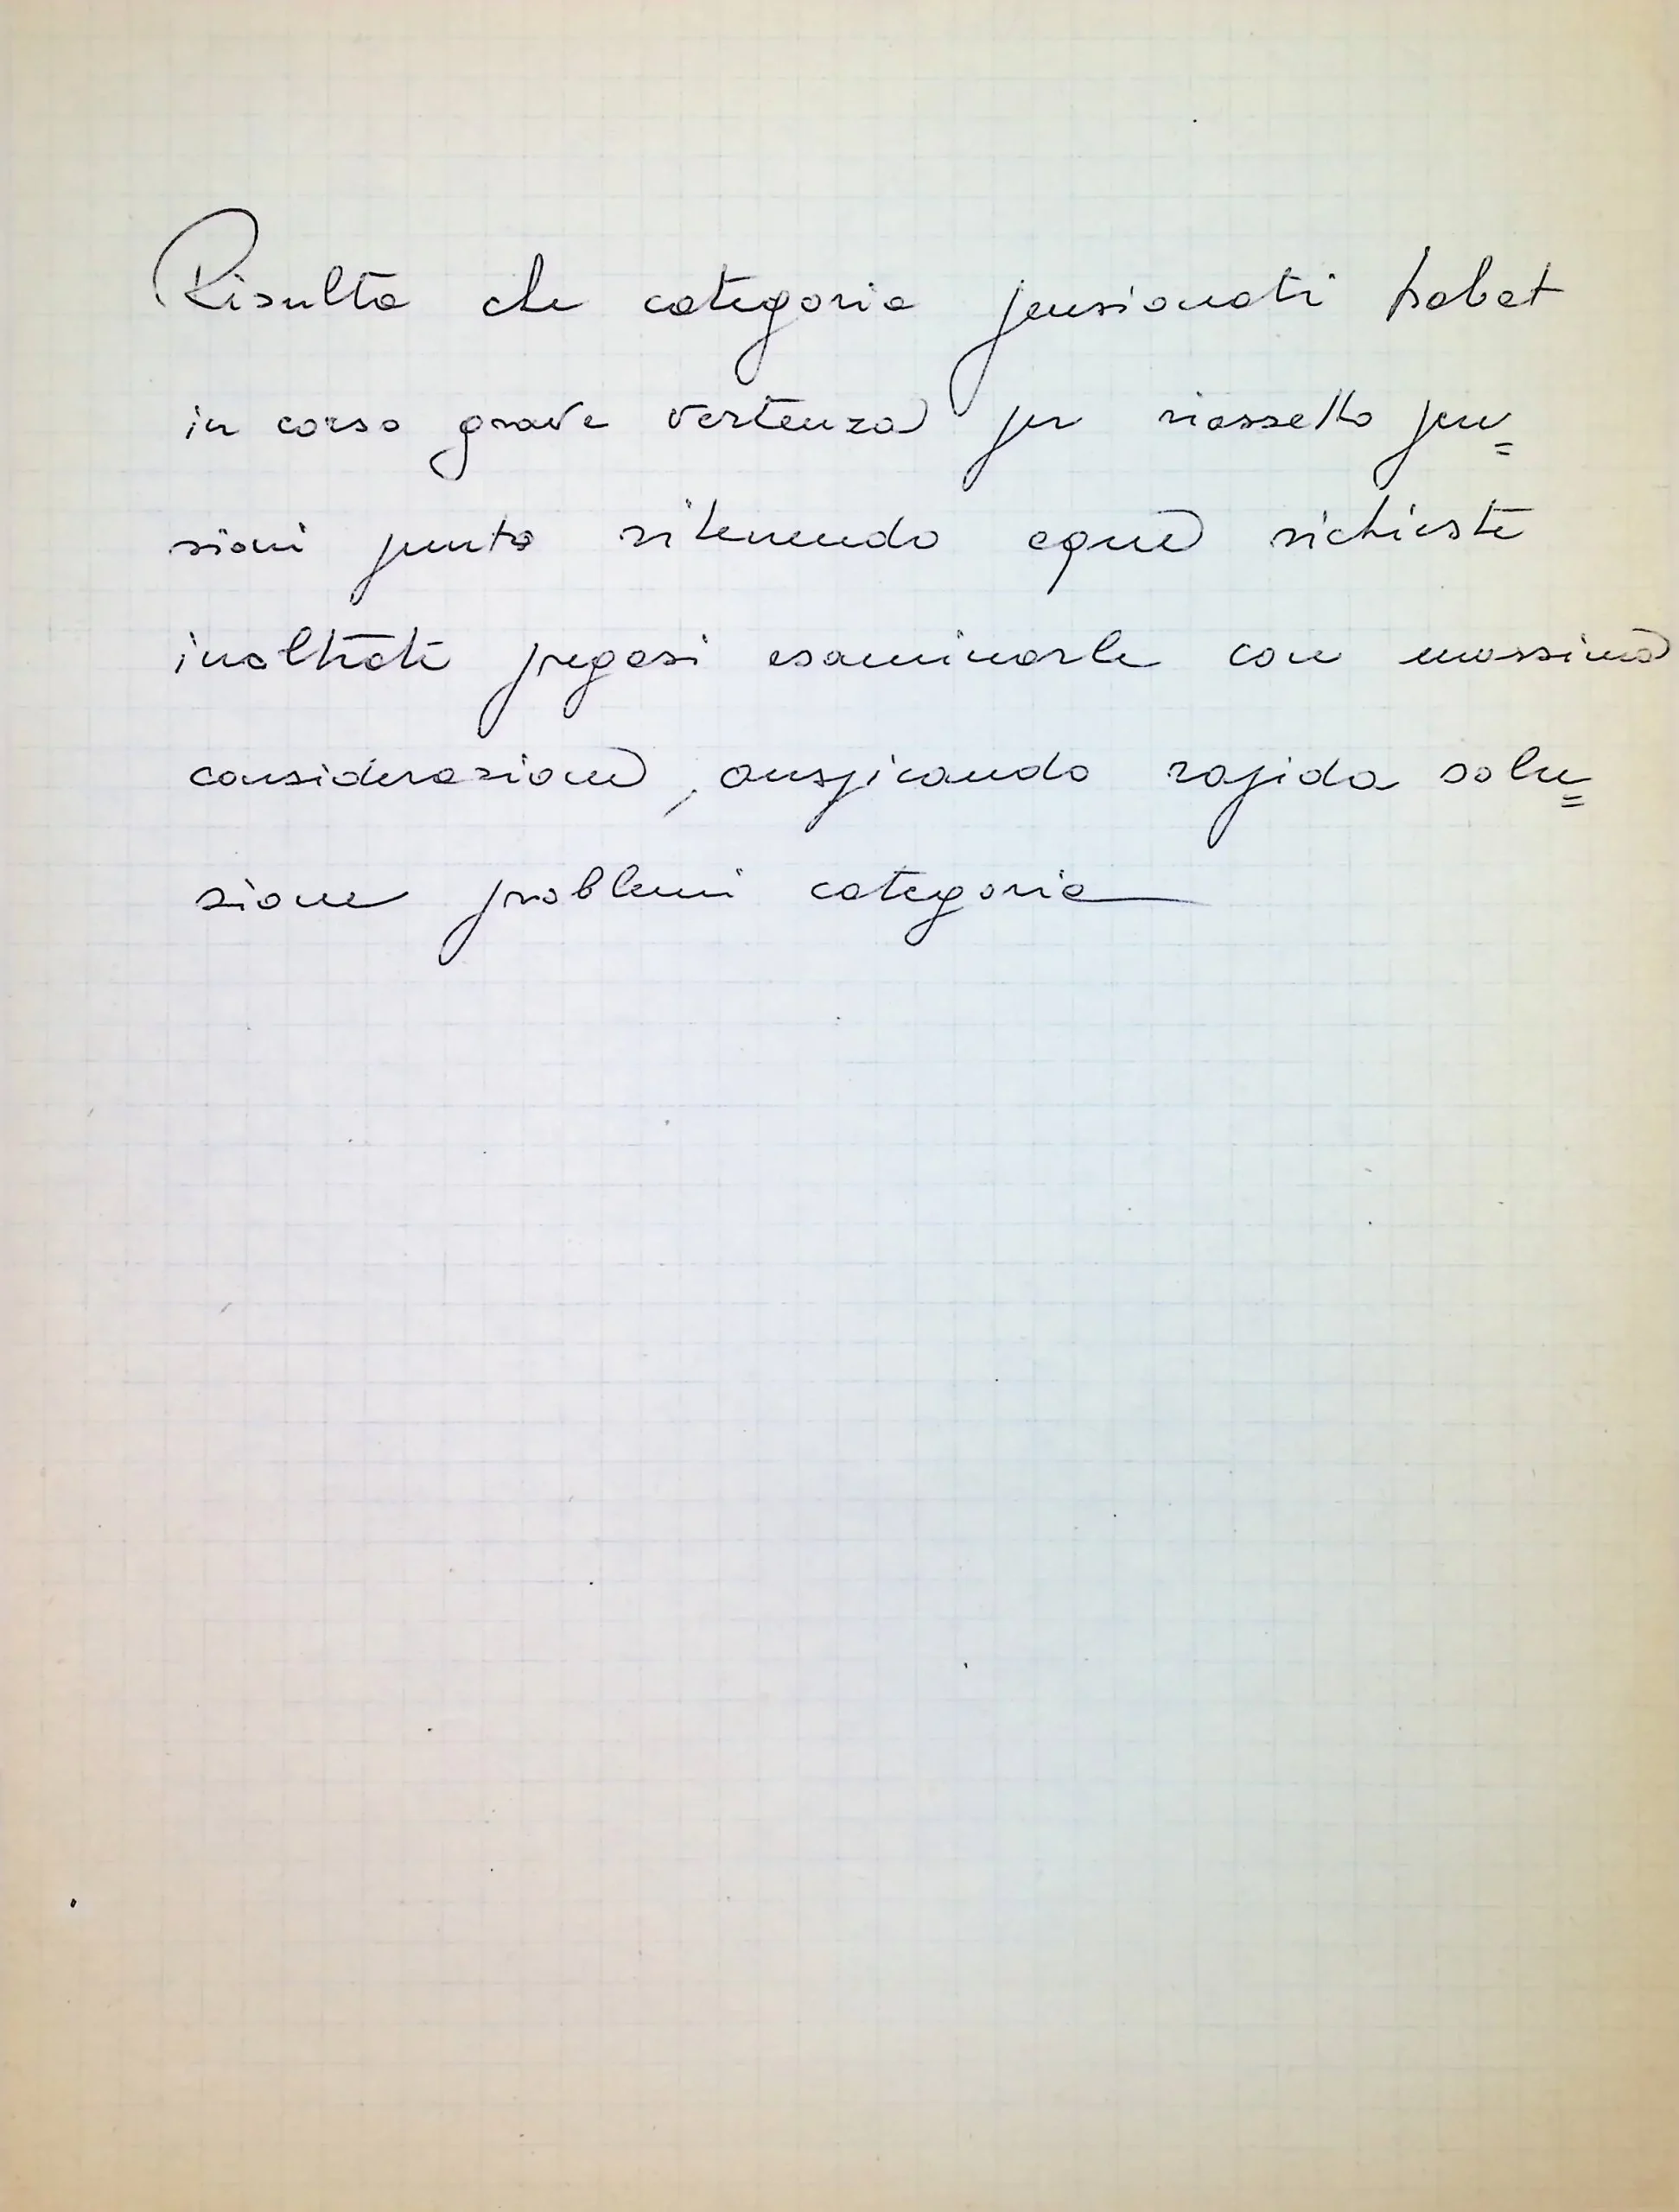 Risulta che categoria pensionati habet
in corso grave vertenza per riassetto pen=
sioni punto ritenendo eque richieste
inoltrate pregasi esaminarle con massima
considerazione, auspicando rapida solu=
zione problemi categoria